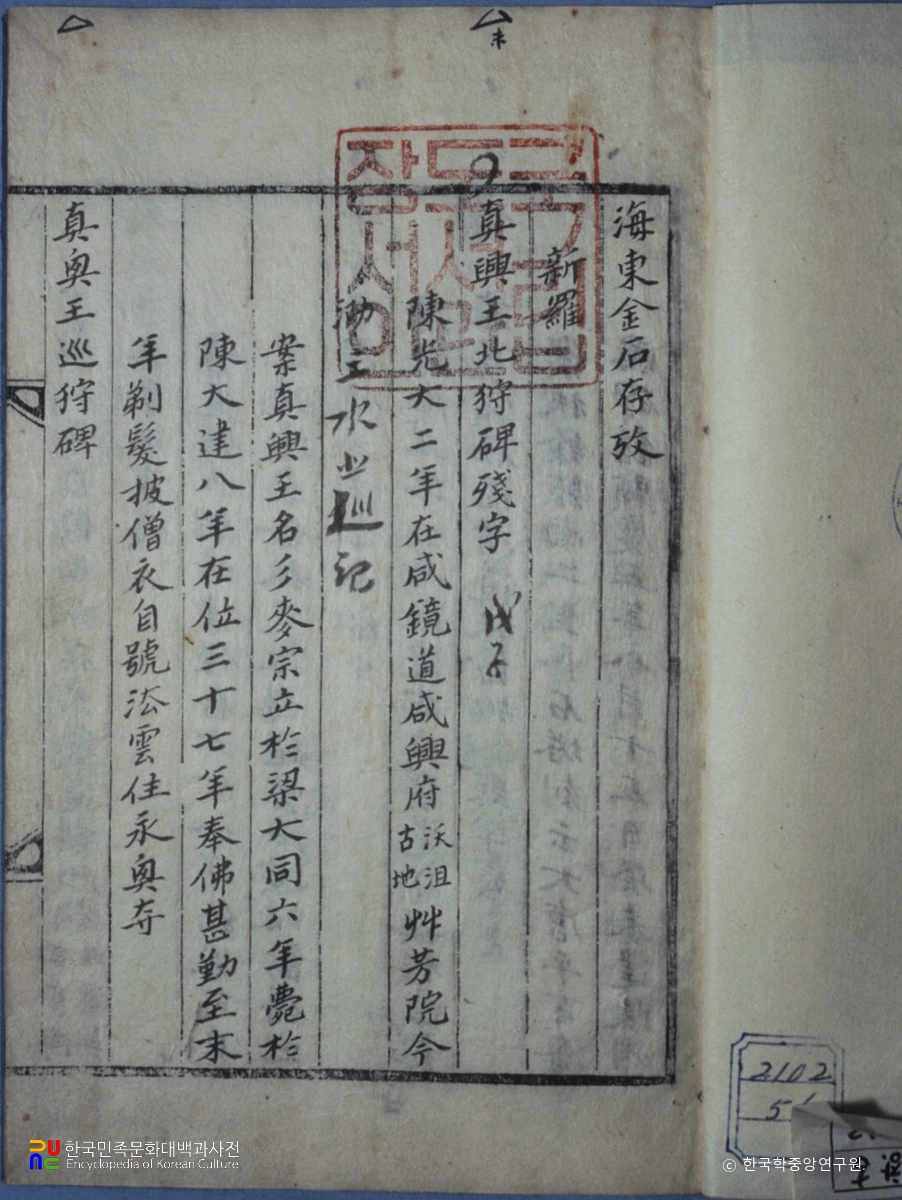 未
海東金石存攷
新羅
真興王北狩碑殘字 戊子
陳光大二年在咸鏡道咸興府沃沮古地艸芳院今
泐 水 巡記
案真興王名彡麥宗立於梁大同六年薨於
陳大建八年在位三十七年奉佛甚勤至末
年剃髮披僧衣自號法雲住永興寺
真興王巡狩碑
국립도서관장서인
2102
한국민족문화대백과사전
Encyclopedia of Korean Culture
© 한국학중앙연구원